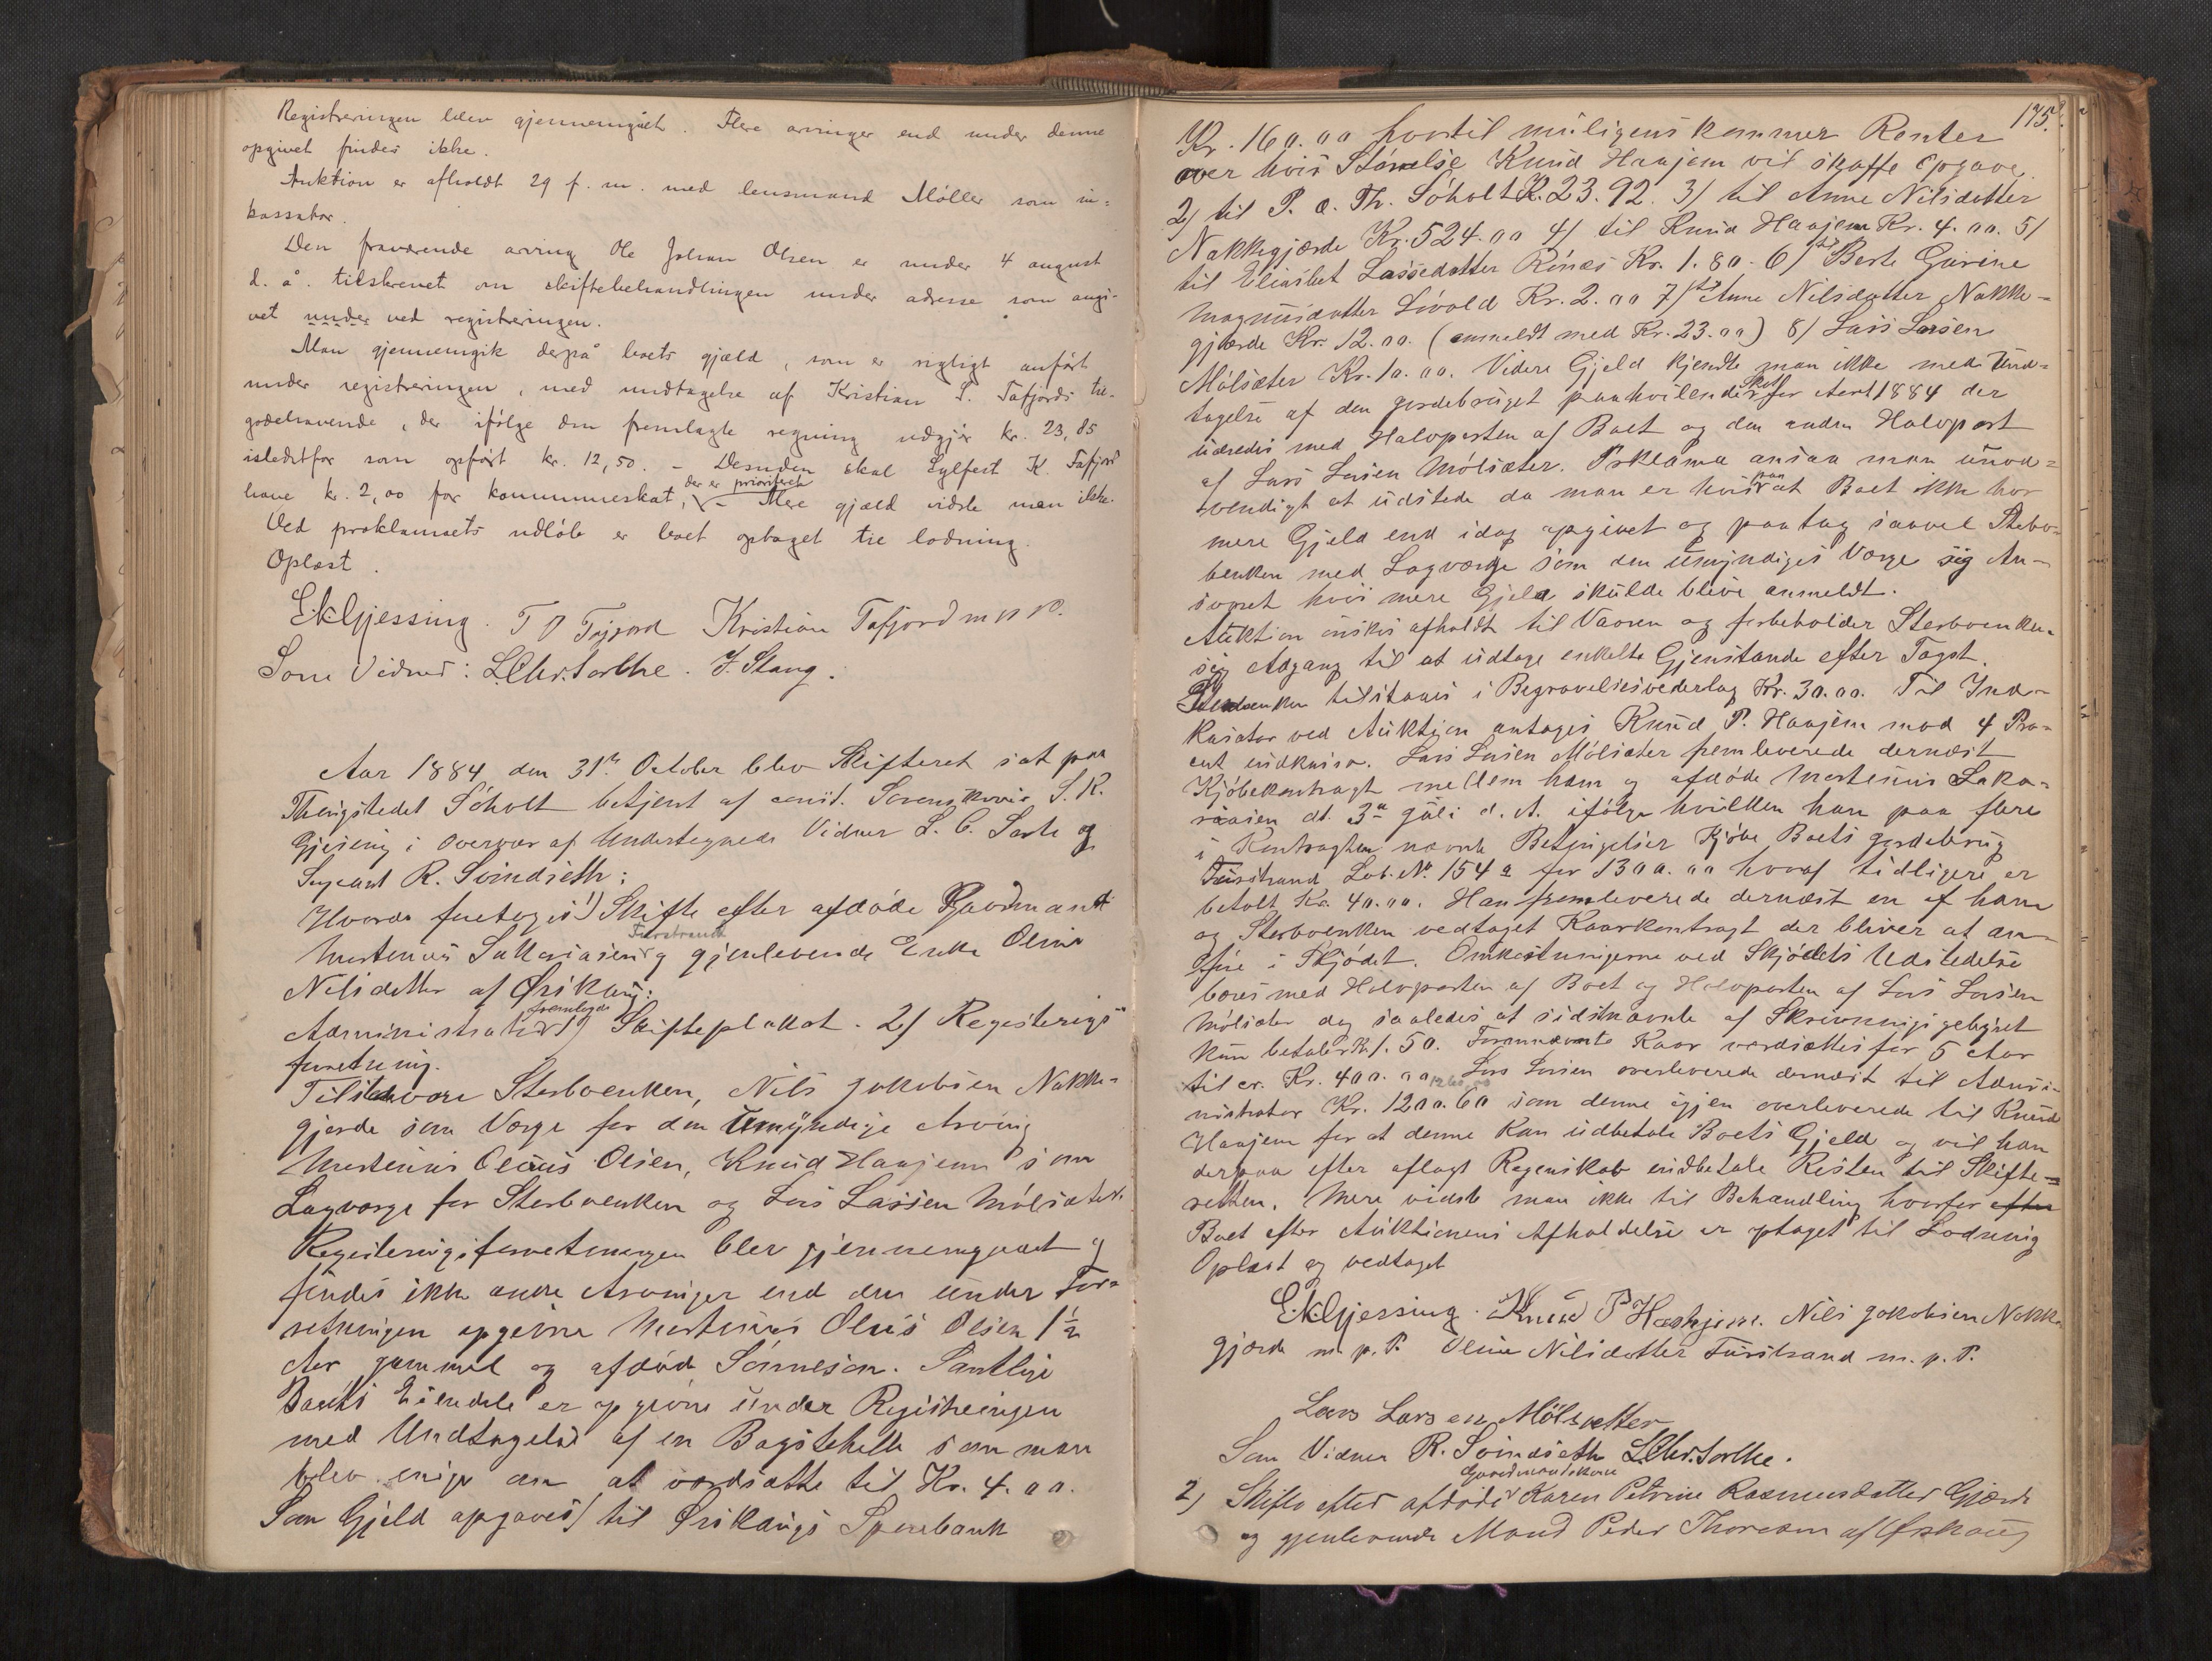 Registreringen blev gjennemgået. Flere arvinger end under denne
opgivet findes ikke.
Auktion er afholdt 29 f. m. med lensmand Møller som in-
kassator.
Den fraværende arving Ole Johan Olsen er under 4 august
d. å. tilskrevet om skiftebehandlingen under adresse som angi-
vet under ved registreringen.
Man gjennemgik derpå boets gjæld, som er rigtigt anført
under registreringen, med undtagelse af Kristian S. Tafjords til-
godehavende, der ifølge den fremlagte regning udgjør kr. 23,85
istedetfor som opført kr. 12,50. – Desuden skal Sylfest K. Tafjord
have kr. 2,00 for kommuneskat, der er prioriteret – Mere gjæld vidste man ikke.
Ved proklamaets udløb er boet optaget til lodning.
Oplæst.
E.K.Gjessing. T O Tafjord Kristian Tafjord m p P.
Som Vidner: L.Chr.Sorthe. J. Stang.
Aar 1884 den 31te October blev Skifteret sat paa
Thingstedet Søholt betjent af const. Sorenskriver E. K.
Gjessing i Overvær af Undertegnede Vidner L. C. Sorte og
Sergeant R. Svindseth:
Hvorda foretoges 1) Skifte efter afdøde Gaardmand
Mortinus Sakariasen Furstrand og gjenlevende Enke Oline
Nilsdatter af Ørskoug:
Administrator fremlagde 1) Skifteplakat. 2) Registerings
foretning.
Tilstede vare Sterboenken, Nils Jakobsen Nakke-
gjerde som Verge for den Umyndige Arving
Martinus Olaus Olsen, Knud Haajem som
Lagverge for Sterboenken og Lars Larsen Mölsæter.
Registeringsforretningen blev gjennemgaaet og
findes ikke andre Arvinger end den under For-
retningen opgivne Martinus Olaus Olsen 1½
Aar gammel og afdøde Sønnesøn. Samtlige
Boets Eiendele er opgivne under Registreringen
med Undtagelse af en Bagstehelle som man
blev enige om at værdsatte til Kr. 4.00.
Som Gjeld opgaves 1) til Ørskougs Sparebank
175.
Kr. 160.00 hvortil muligens kommer Renter
over hvis Størrelse Knud Haajem vil skaffe Opgave.
2) til P. A. Th. Søholt K. 23.92. 3) til Anne Nilsdatter
Nakkegjærde Kr. 524.00 4) til Knud Haajem Kr. 4.00. 5)
til Elisabet Lassedatter Rönæs Kr. 1.80. 6) til Berte Gurine
Magnusdatter Livold Kr. 2.00 7) til Anne Nilsdatter Nakke-
gjærde Kr. 12.00. (anmeldt med Kr. 23.00) 8) Lars Larsen
Mölsæter Kr. 10.00. Videre Gjeld kjendte man ikke med Und-
tagelse af den gordebruget paahvilende Skat for Aaret 1884 der
udredes med Halvparten af Boet og den anden Halvpart
af Lars Larsen Mölsæter. Proklama ansaa man unød-
vendigt at udstede da man er vis paa at Boet ikke har
mere Gjeld end idag opgivet og paatog saavel Sterbo-
benken med Lagverge som den umyndiges Verge sig An-
svaret hvis mere Gjeld skulde blive anmeldt.
Auktion ønskes afholdt til Vaaren og forbeholder Sterboenken
sig Adgang til at udtage enkelte Gjenstande efter Taxst.
Sterboenken tilstaaes i Begravelsesvederlag Kr. 30.00. Til Ind-
kasator ved Auktion antages Knud P. Haajem mod 4 Pro-
cent indkasso. Lars Larsen Mölsæter fremleverede dernæst
Kjøbekontragt mellem ham og afdøde Mortinus Saka-
riasen dt. 3die Juli d. A. ifølge hvilken han paa flere
i Kontragten nævnte Betingelser Kjøbe Boets gordebrug
Furstrand Løb. No. 154 a for 1300.00 hvoraf tidligere er
betalt Kr. 40.00. Han fremleverede dernæst en af ham
og Sterboenken vedtaget Kaarkontragt der bliver at an-
føre i Skjødet. Omkostningerne ved Skjødets Udstedelse
bæres med Halvparten af Boet og Halvparten af Lars Larsen
Mölsæter dog saaledes at sidstnævnte af Skrivningsgebyret
kun betaler Kr. 1.50. Fornævnte Kaar værdsættes for 5 Aar
til cr. Kr. 400.00. Lars Larsen overleverede dernæst til Admi-
nistrator Kr. 1200.60 1260,00 som denne igjen overleverede til Knud
Haajem for at denne kan udbetale Boets Gjeld og vil han
derpaa efter aflagt Regenskab indbetale Resten til Skifte-
retten. Mere vidste man ikke til Behandling hvorfor efter
Boet efter Auktionens Afholdelse er optaget til Lodning
Oplæst og vedtaget
E.K.Gjessing. Knud P Haahjem. Nils Jakobsen Nakke
gjærde m. p. P. Oline Nilsdatter Furstrand m. p. P.
Lars Larsen Mölsætter
Som Vidner R. Svindseth L.Chr.Sorthe.
2) Skifte efter afdøde Gaardmandskone Karen Petrine Rasmusdatter Gjærde
og gjenlevende Mand Peder Thoresen af Ørskoug